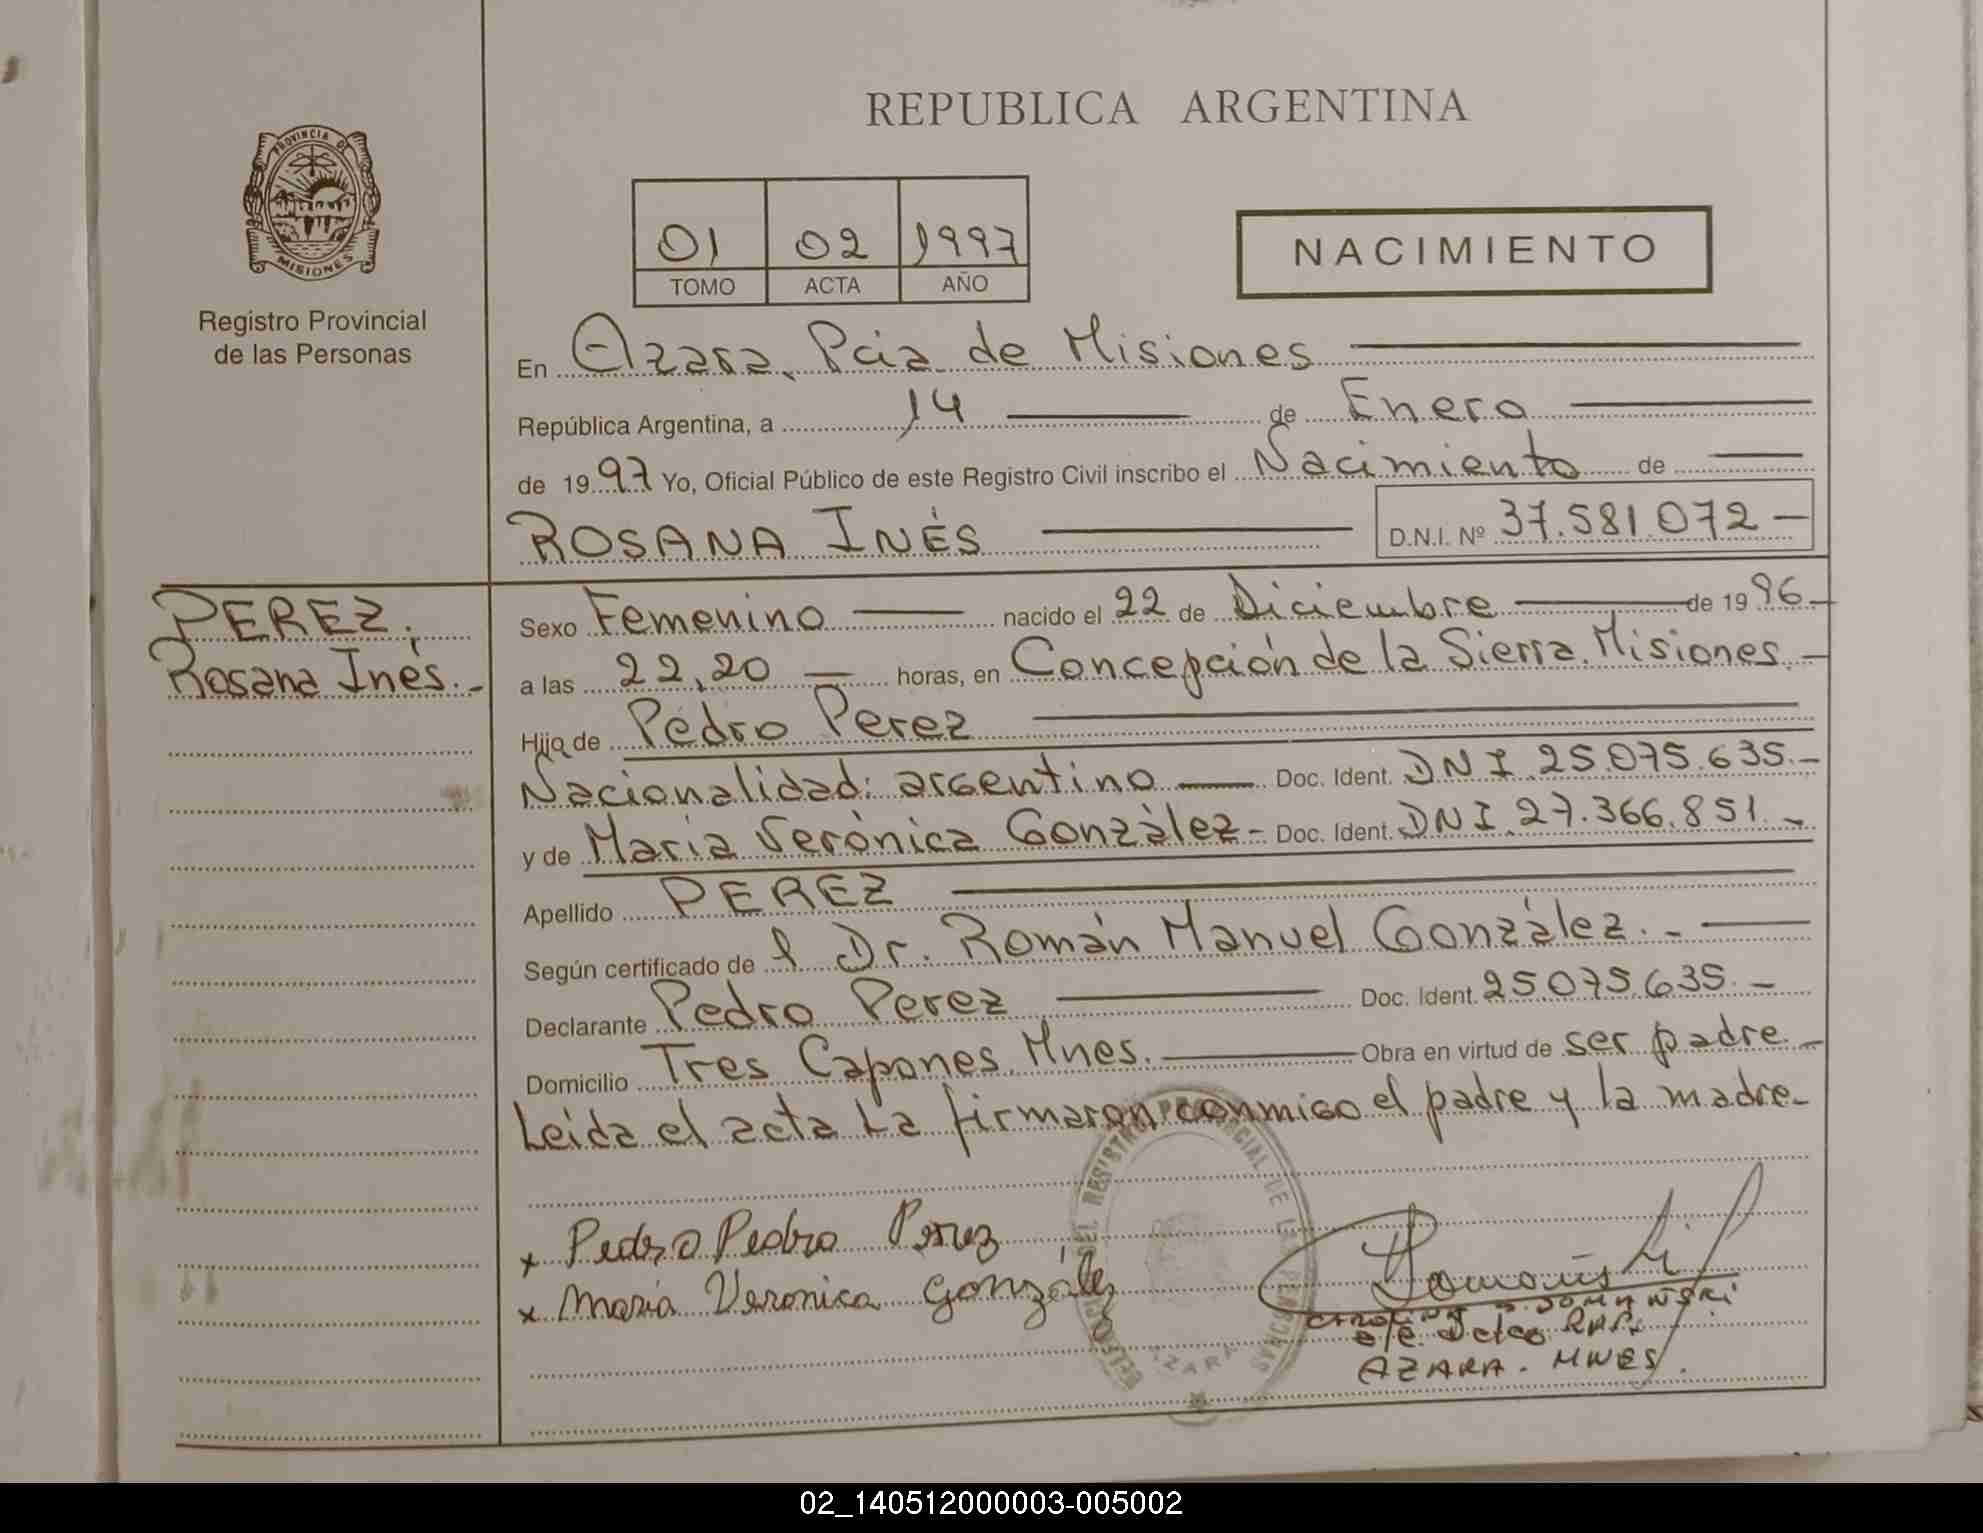 REPUBLICA ARGENTINA
PROVINCIA DE MISIONES
Registro Provincial
de las Personas
01 02 1997
TOMO ACTA AÑO
NACIMIENTO
En Azara, Pcia de Misiones
República Argentina, a 14 de Enero
de 1997 Yo, Oficial Público de este Registro Civil inscribo el Nacimiento de
ROSANA INÉS D.N.I. Nº 37.581.072
PEREZ,
Rosana Inés.-
Sexo Femenino nacido el 22 de Diciembre de 1996
a las 22,20 horas, en Concepción de la Sierra. Misiones
Hija de Pedro Perez
Nacionalidad: argentino Doc. Ident. DNI 25.075.635.-
y de María Verónica González - Doc. Ident. DNI 27.366.851.-
Apellido PEREZ
Según certificado de l Dr. Román Manuel González.-
Declarante Pedro Perez Doc. Ident. 25.075.635.-
Domicilio Tres Capones Mnes. Obra en virtud de ser padre
Leída el acta La firmaron conmigo el padre y la madre-
x Pedro Pedro Perez
x Maria Veronica González
DEL REGISTRO PROVINCIAL DE LAS PERSONAS
AZARA
AZARA. MNES.
02_140512000003-005002